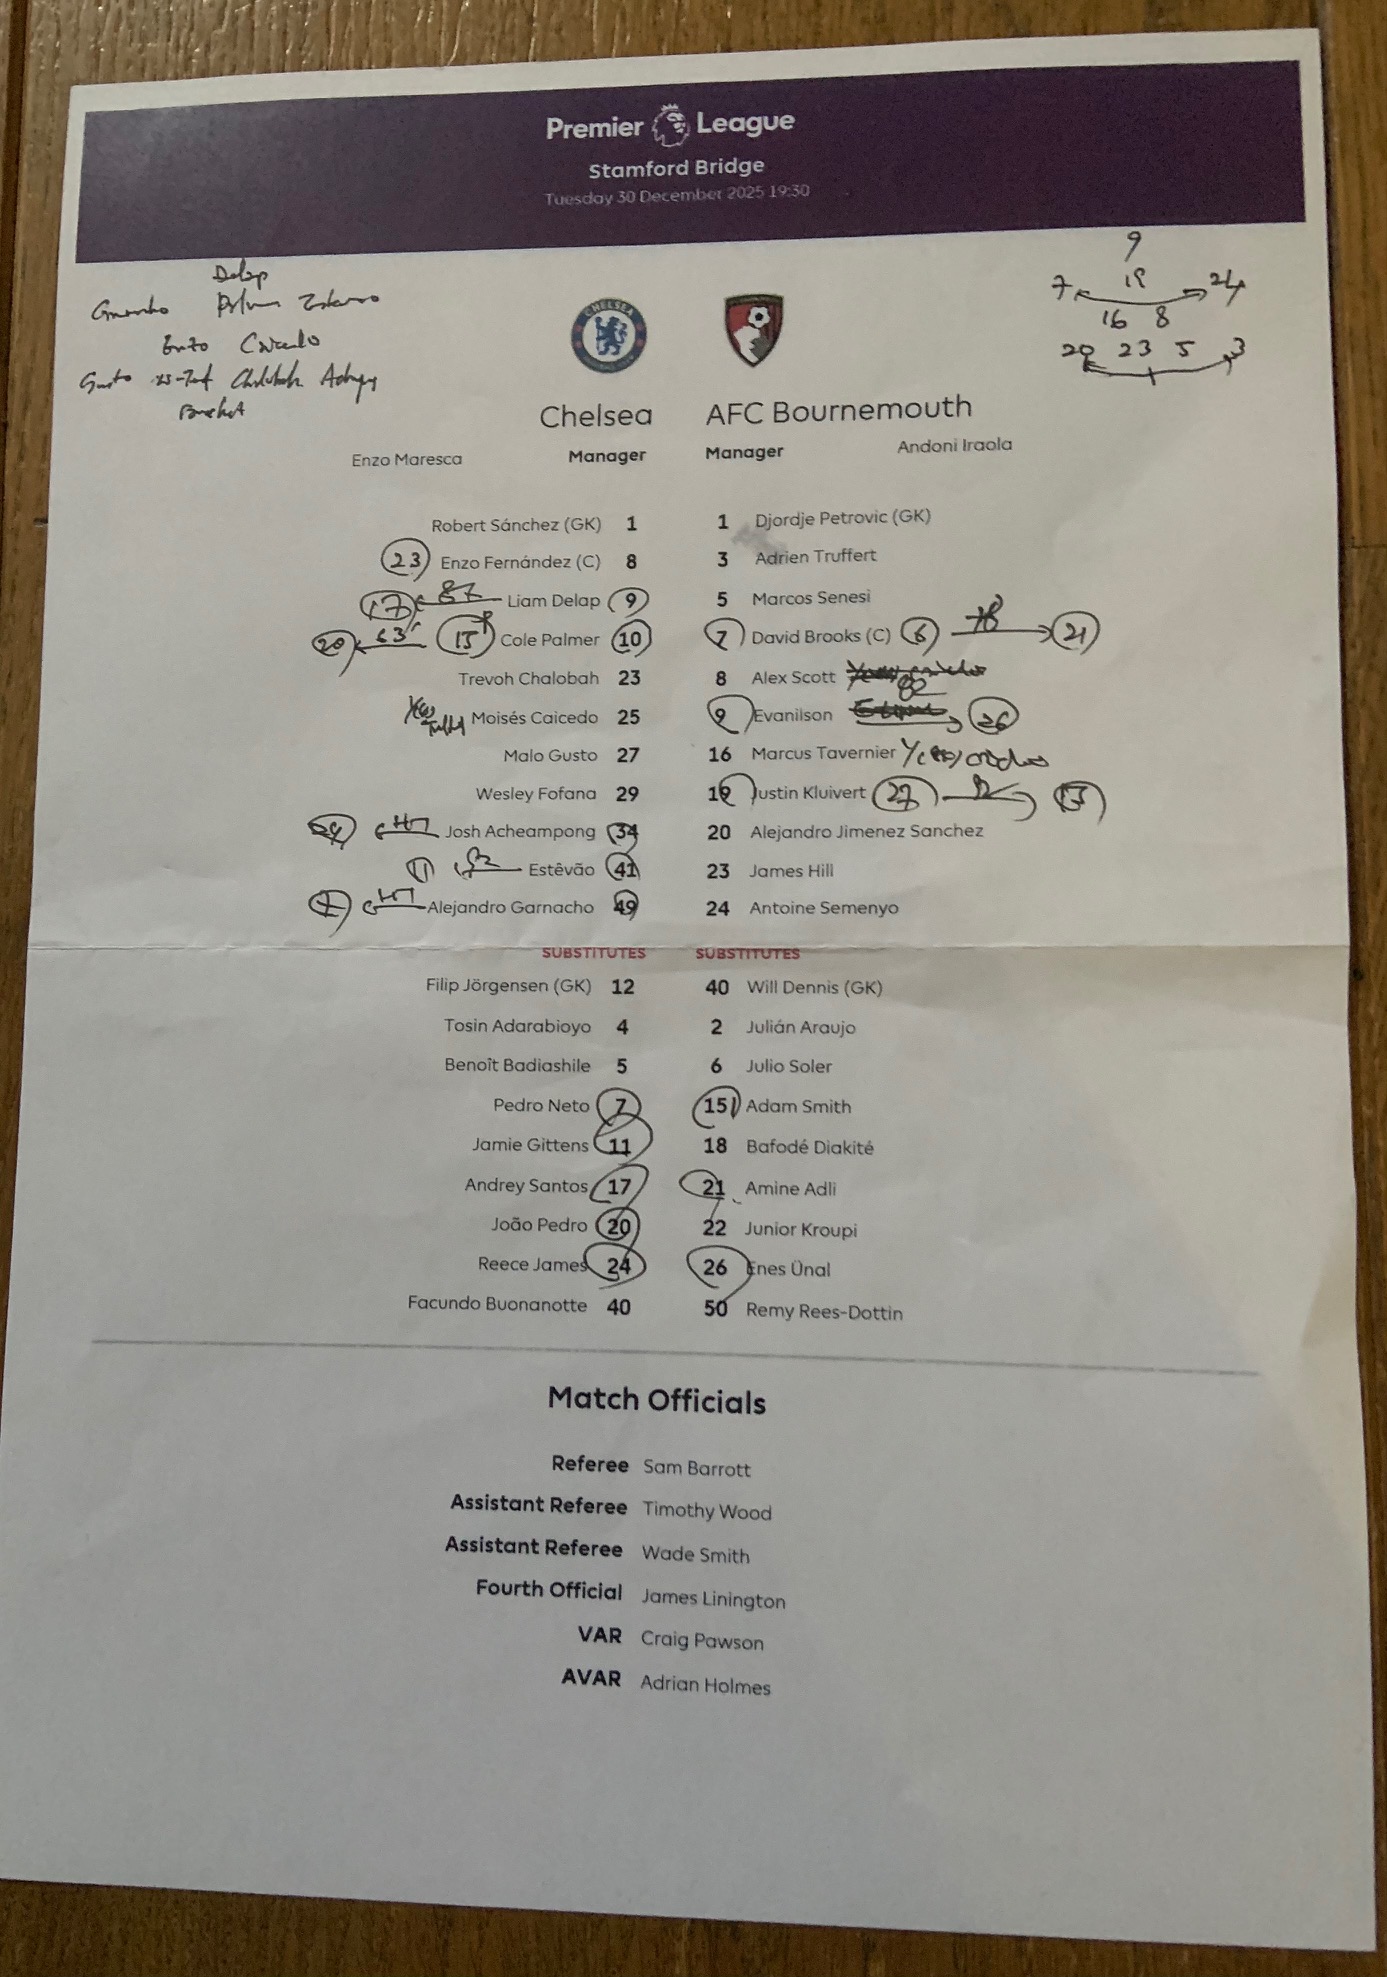 Premier League
Stamford Bridge
Tuesday 30 December 2025 19:30
Delap
Enzo
Gusto
9
7 19 24
16 8
20 23 5 3
CHELSEA
Chelsea AFC Bournemouth
Enzo Maresca Manager Manager Andoni Iraola
Robert Sánchez (GK) 1 1 Djordje Petrovic (GK)
23 Enzo Fernández (C) 8 3 Adrien Truffert
17 87 Liam Delap 9 5 Marcos Senesi
20 63 15 Cole Palmer 10 7 David Brooks (C) 6 78 21
Trevoh Chalobah 23 8 Alex Scott
Moisés Caicedo 25 9 Evanilson 82 26
Malo Gusto 27 16 Marcus Tavernier
Wesley Fofana 29 19 Justin Kluivert 27
HT Josh Acheampong 34 20 Alejandro Jimenez Sanchez
11 Estêvão 41 23 James Hill
7 HT Alejandro Garnacho 49 24 Antoine Semenyo
SUBSTITUTES SUBSTITUTES
Filip Jörgensen (GK) 12 40 Will Dennis (GK)
Tosin Adarabioyo 4 2 Julián Araujo
Benoît Badiashile 5 6 Julio Soler
Pedro Neto 7 15 Adam Smith
Jamie Gittens 11 18 Bafodé Diakité
Andrey Santos 17 21 Amine Adli
João Pedro 20 22 Junior Kroupi
Reece James 24 26 Enes Ünal
Facundo Buonanotte 40 50 Remy Rees-Dottin
Match Officials
Referee Sam Barrott
Assistant Referee Timothy Wood
Assistant Referee Wade Smith
Fourth Official James Linington
VAR Craig Pawson
AVAR Adrian Holmes